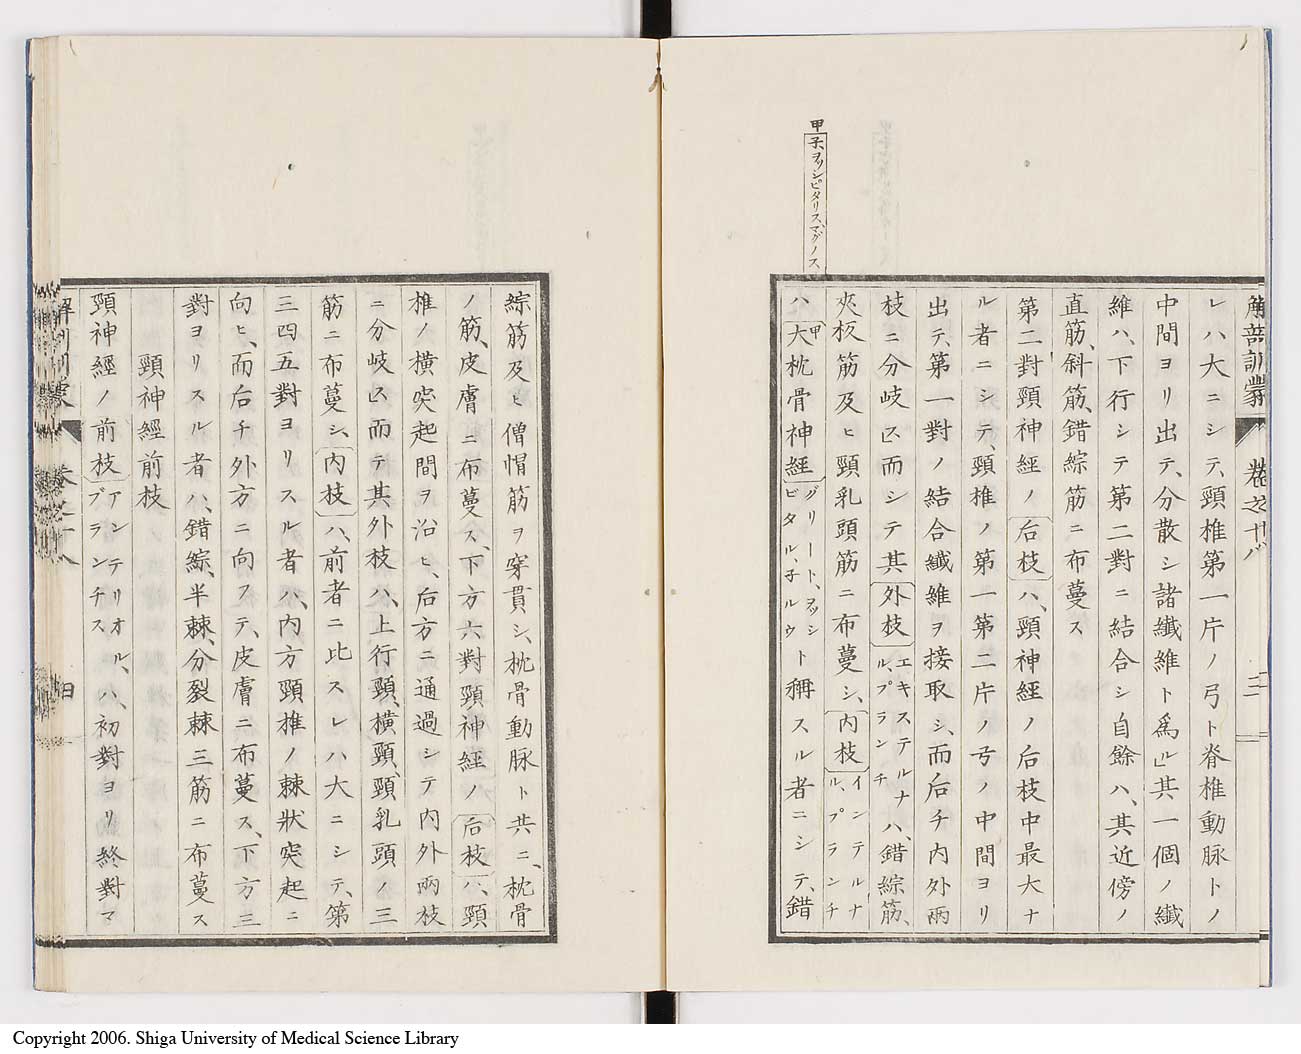 解剖訓蒙 卷之十八 三
甲 子ヲソシピタリス、マグノス
レハ大ニシテ、頸椎第一片ノ弓ト脊椎動脉トノ
中間ヨリ出テ、分散シ諸纎維ト爲ル」其一個ノ纎
維ハ、下行シテ第二對ニ結合シ自餘ハ、其近傍ノ
直筋、斜筋、錯綜筋ニ布蔓ス
第二對頸神經ノ后枝ハ、頸神經ノ后枝中最大ナ
ル者ニシテ、頸椎ノ第一第二片ノ弓ノ中間ヨリ
出テ、第一對ノ結合纎維ヲ接取シ、而后チ内外兩
枝ニ分岐ス而シテ其外枝エキステルナル、ブランチハ、錯綜筋、
夾板筋及ヒ頸乳頭筋ニ布蔓シ、内枝インテルナル、ブランチ
ハ甲大枕骨神經グリート、ヲッシピタル、子ルウト稱スル者ニシテ、錯
綜筋及ヒ僧帽筋ヲ穿貫シ、枕骨動脉ト共ニ、枕骨
ノ筋、皮膚ニ布蔓ス、下方六對頸神經ノ后枝ハ、頸
椎ノ横突起間ヲ沿ヒ、后方ニ通過シテ内外兩枝
ニ分岐ス而テ其外枝ハ、上行頸、横頸、頸乳頭ノ三
筋ニ布蔓シ、内枝ハ、前者ニ比スレハ大ニシテ、第
三四五對ヨリスル者ハ、内方頸椎ノ棘狀突起ニ
向ヒ、而后チ外方ニ向フテ、皮膚ニ布蔓ス、下方三
對ヨリスル者ハ、錯綜、半棘、分裂棘三筋ニ布蔓ス
頸神經前枝
頸神經ノ前枝アンテリオル、ブランチスハ、初對ヨリ終對マ
解剖訓蒙 卷之十八 四
Copyright 2006. Shiga University of Medical Science Library